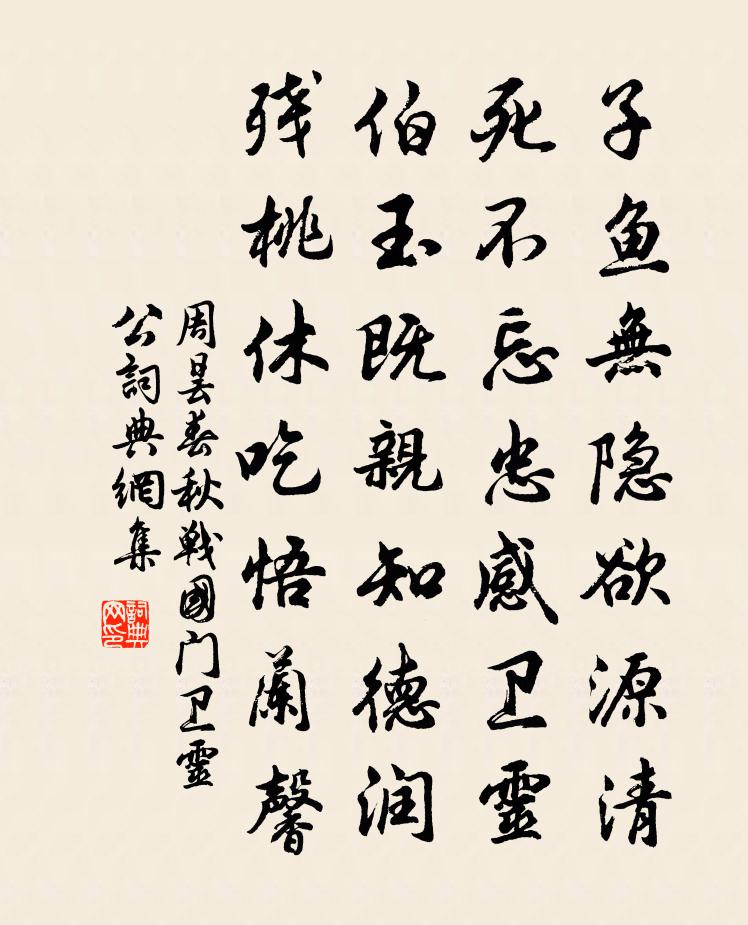 子鱼無隐欲源清
死不忘忠感卫靈
伯玉既親知德润
残桃休吃悟蘭馨
周昙春秋戰國门卫靈
公詞典網集
詞典
网印